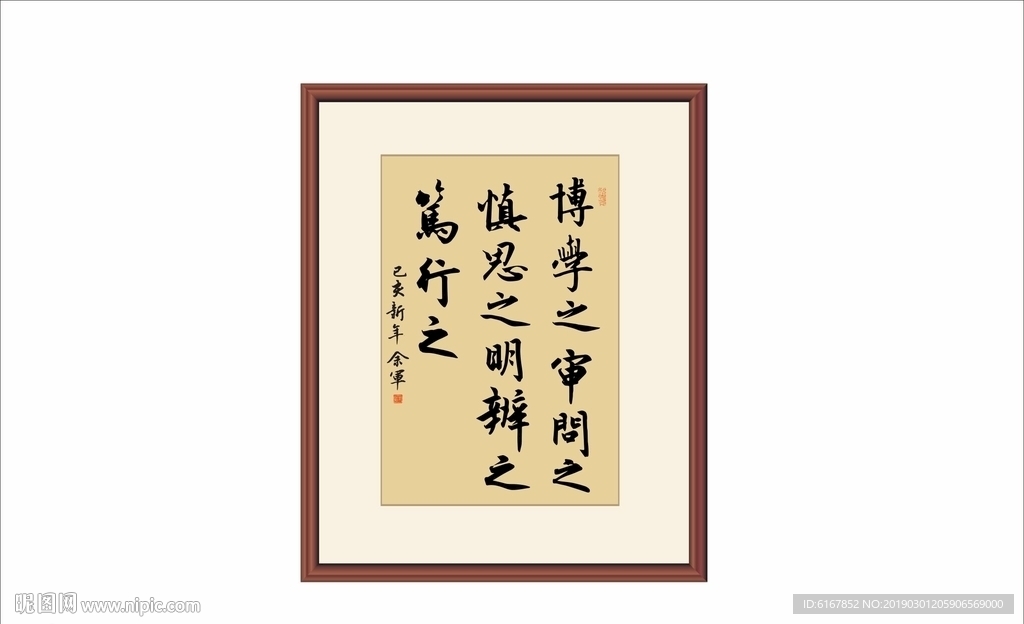 博學之审問之
慎思之明辨之
篤行之
己亥新年 余軍
昵图网 www.nipic.com
ID:6167852 NO:20190301205906569000